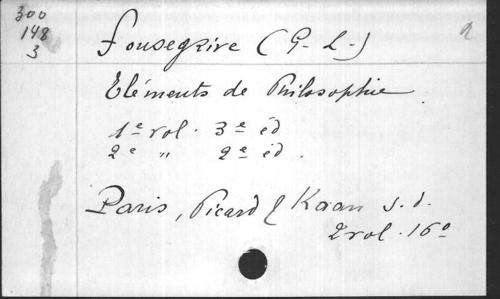 300
148
3
Fonsegrive (G. L.)
2
Eléments de Philosophie
1e vol. 3e éd
2e " 2e éd.
Paris, Picard & Kaan s. d.
2 vol. 16º